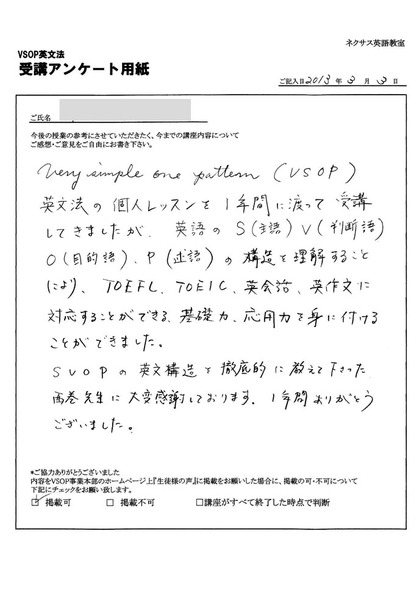 ネクサス英語教室
VSOP英文法
受講アンケート用紙
ご記入日2013年3月3日
ご氏名
今後の授業の参考にさせていただきたく、今までの講座内容について
ご感想・ご意見をご自由にお書き下さい。
Very simple one pattern (VSOP)
英文法の個人レッスンを1年間に渡って受講
してきましたが、英語のS(主語)V(判断語)
O(目的語)、P(述語)の構造を理解すること
により、TOEFL、TOEIC、英会話、英作文に
対応することができる、基礎力、応用力を身に付ける
ことができました。
SVOPの英文構造を徹底的に教えて下さった
西巻先生に大変感謝しております。1年間ありがとう
ございました。
*ご協力ありがとうございました
内容をVSOP事業本部のホームページ上『生徒様の声』に掲載をお願いした場合に、掲載の可・不可について
下記にチェックをお願い致します。
☑ 掲載可 □ 掲載不可 □講座がすべて終了した時点で判断